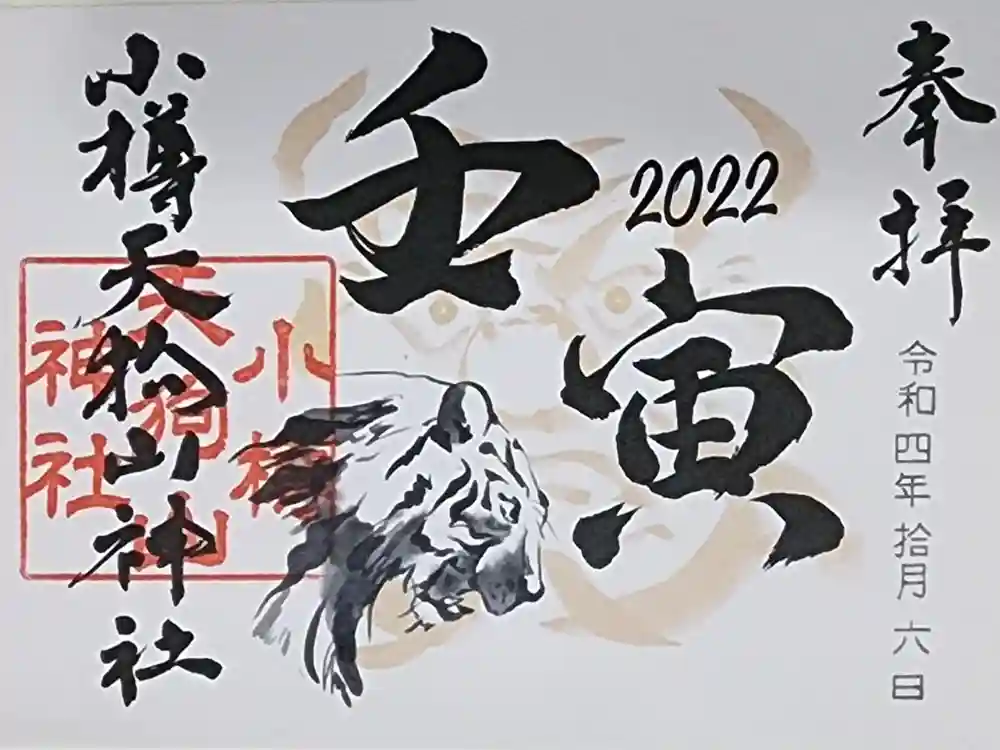 奉拝
令和四年拾月六日
壬
2022
寅
小樽天狗山神社
小樽
天狗山
神社